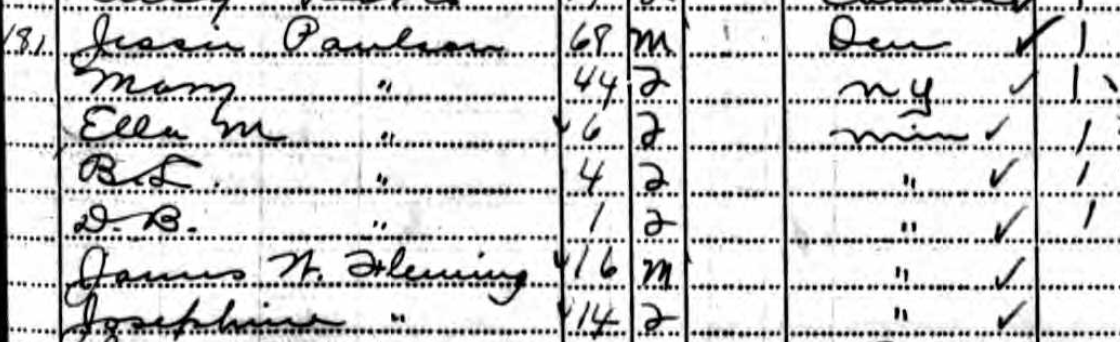 181 Jessie Paulson 68 m Den ✓ 1
Mary " 44 F NY ✓ 1
Ella M " ✓ 6 F Minn ✓ 1
B.L. " 4 F " ✓ 1
D.B. " 1 F " ✓ 1
James W. Fleming ✓ 16 m " ✓
Josephine " ✓ 14 F " ✓